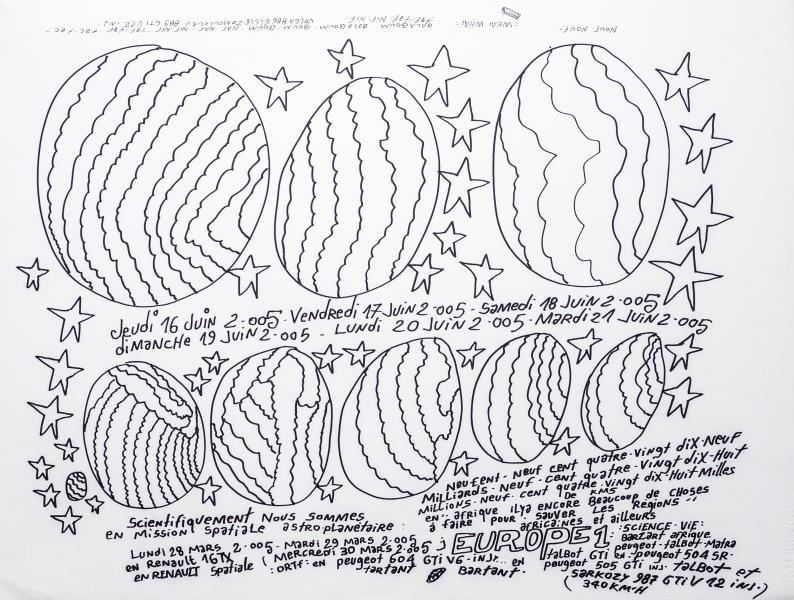 Nouf-Nouf-
-WHAI WHAI-
BALABOUM- BOLO BOUM- BOUM- NAF- NAF- NIF- NIF- TOF- TOF- TOC- TOC-
TOF-TOF-NIF-NIF-
Jeudi 16 Juin 2-005-Vendredi 17 JUIN 2-005-Samedi 18 JUIN 2-005
dimANCHE 19 JUIN 2-005 - LUNDI 20 JUIN 2-005-MARDI 21 JUIN 2-005
NEUf-CENT QUATRE-VINGT diX-NEUF
Milliards-Neuf-cent quatre-Vingt diX-Huit
Millions-Neuf-cent quatre Vingt diX-Huit Milles
De KMS
en afrique ilya encore Beaucoup de CHOSES
à faire pour SAUVER LES REGIONS
africaines et ailleurs
Scientifiquement Nous SOMMES
en Mission Spatiale astroplanétaire :
:SCIENCE-ViE:
EUROPE 1
Barzart afrique
Lundi 28 Mars 2-005-Mardi 29 mars 2-005
peugeot-talBot-Matra
en Renault 16TX (Mercredi 30 Mars 2-005
talBot GTi en-peugeot 504 SR-
en RENAULT Spatiale :ORTF-en peugeot 604 GTi V6-iNJ.. en peugeot 505 GTi iNJ. talBot et
tartant Bartant.
(SARKOZY 987 GTi V 12 iNJ.)
(340KM-H